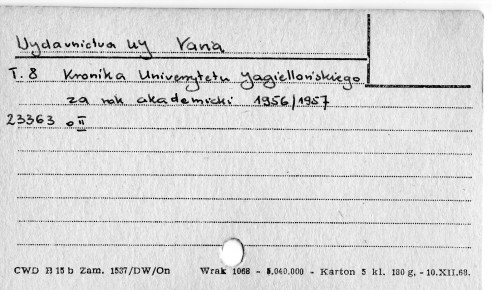 Wydawnictwa UJ Varia
T. 8 Kronika Uniwersytetu Jagiellońskiego
za rok akademicki 1956/1957
23363 II
CWD B 15 b Zam. 1537/DW/On Wrak 1068 - 5.040.000 - Karton 5 kl. 180 g. - 10.XII.68.